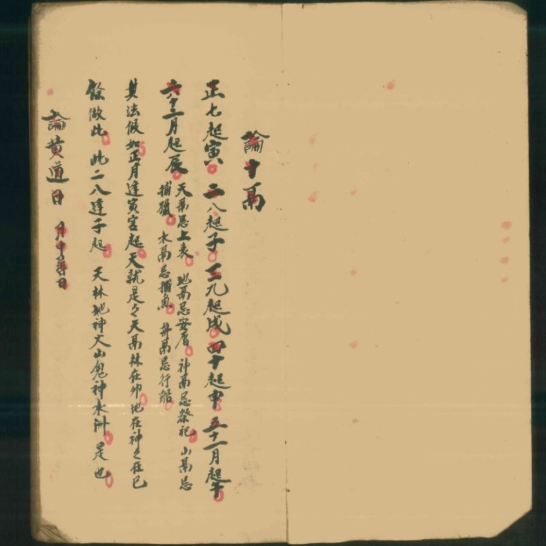 論十鬲
正七起寅 二八起子 三九起戌 四十起申 五十一月起午
六十二月起辰 天鬲忌上表 地鬲忌安厝 神鬲忌祭祀 山鬲忌
捕獵 水鬲忌捕魚 井鬲忌行船
其法假如正月建寅宮起天就是之天鬲林在卯地在神之在巳
餘倣此 此二八建子起 天林地神火山鬼神水井 是也
論黃道日 月中尋日